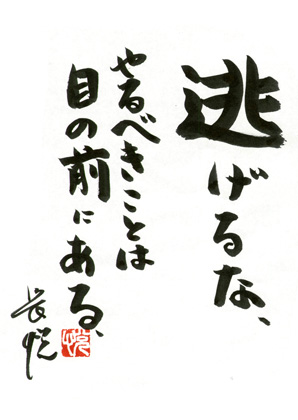 逃げるな、
やるべきことは
目の前にある、
長悦